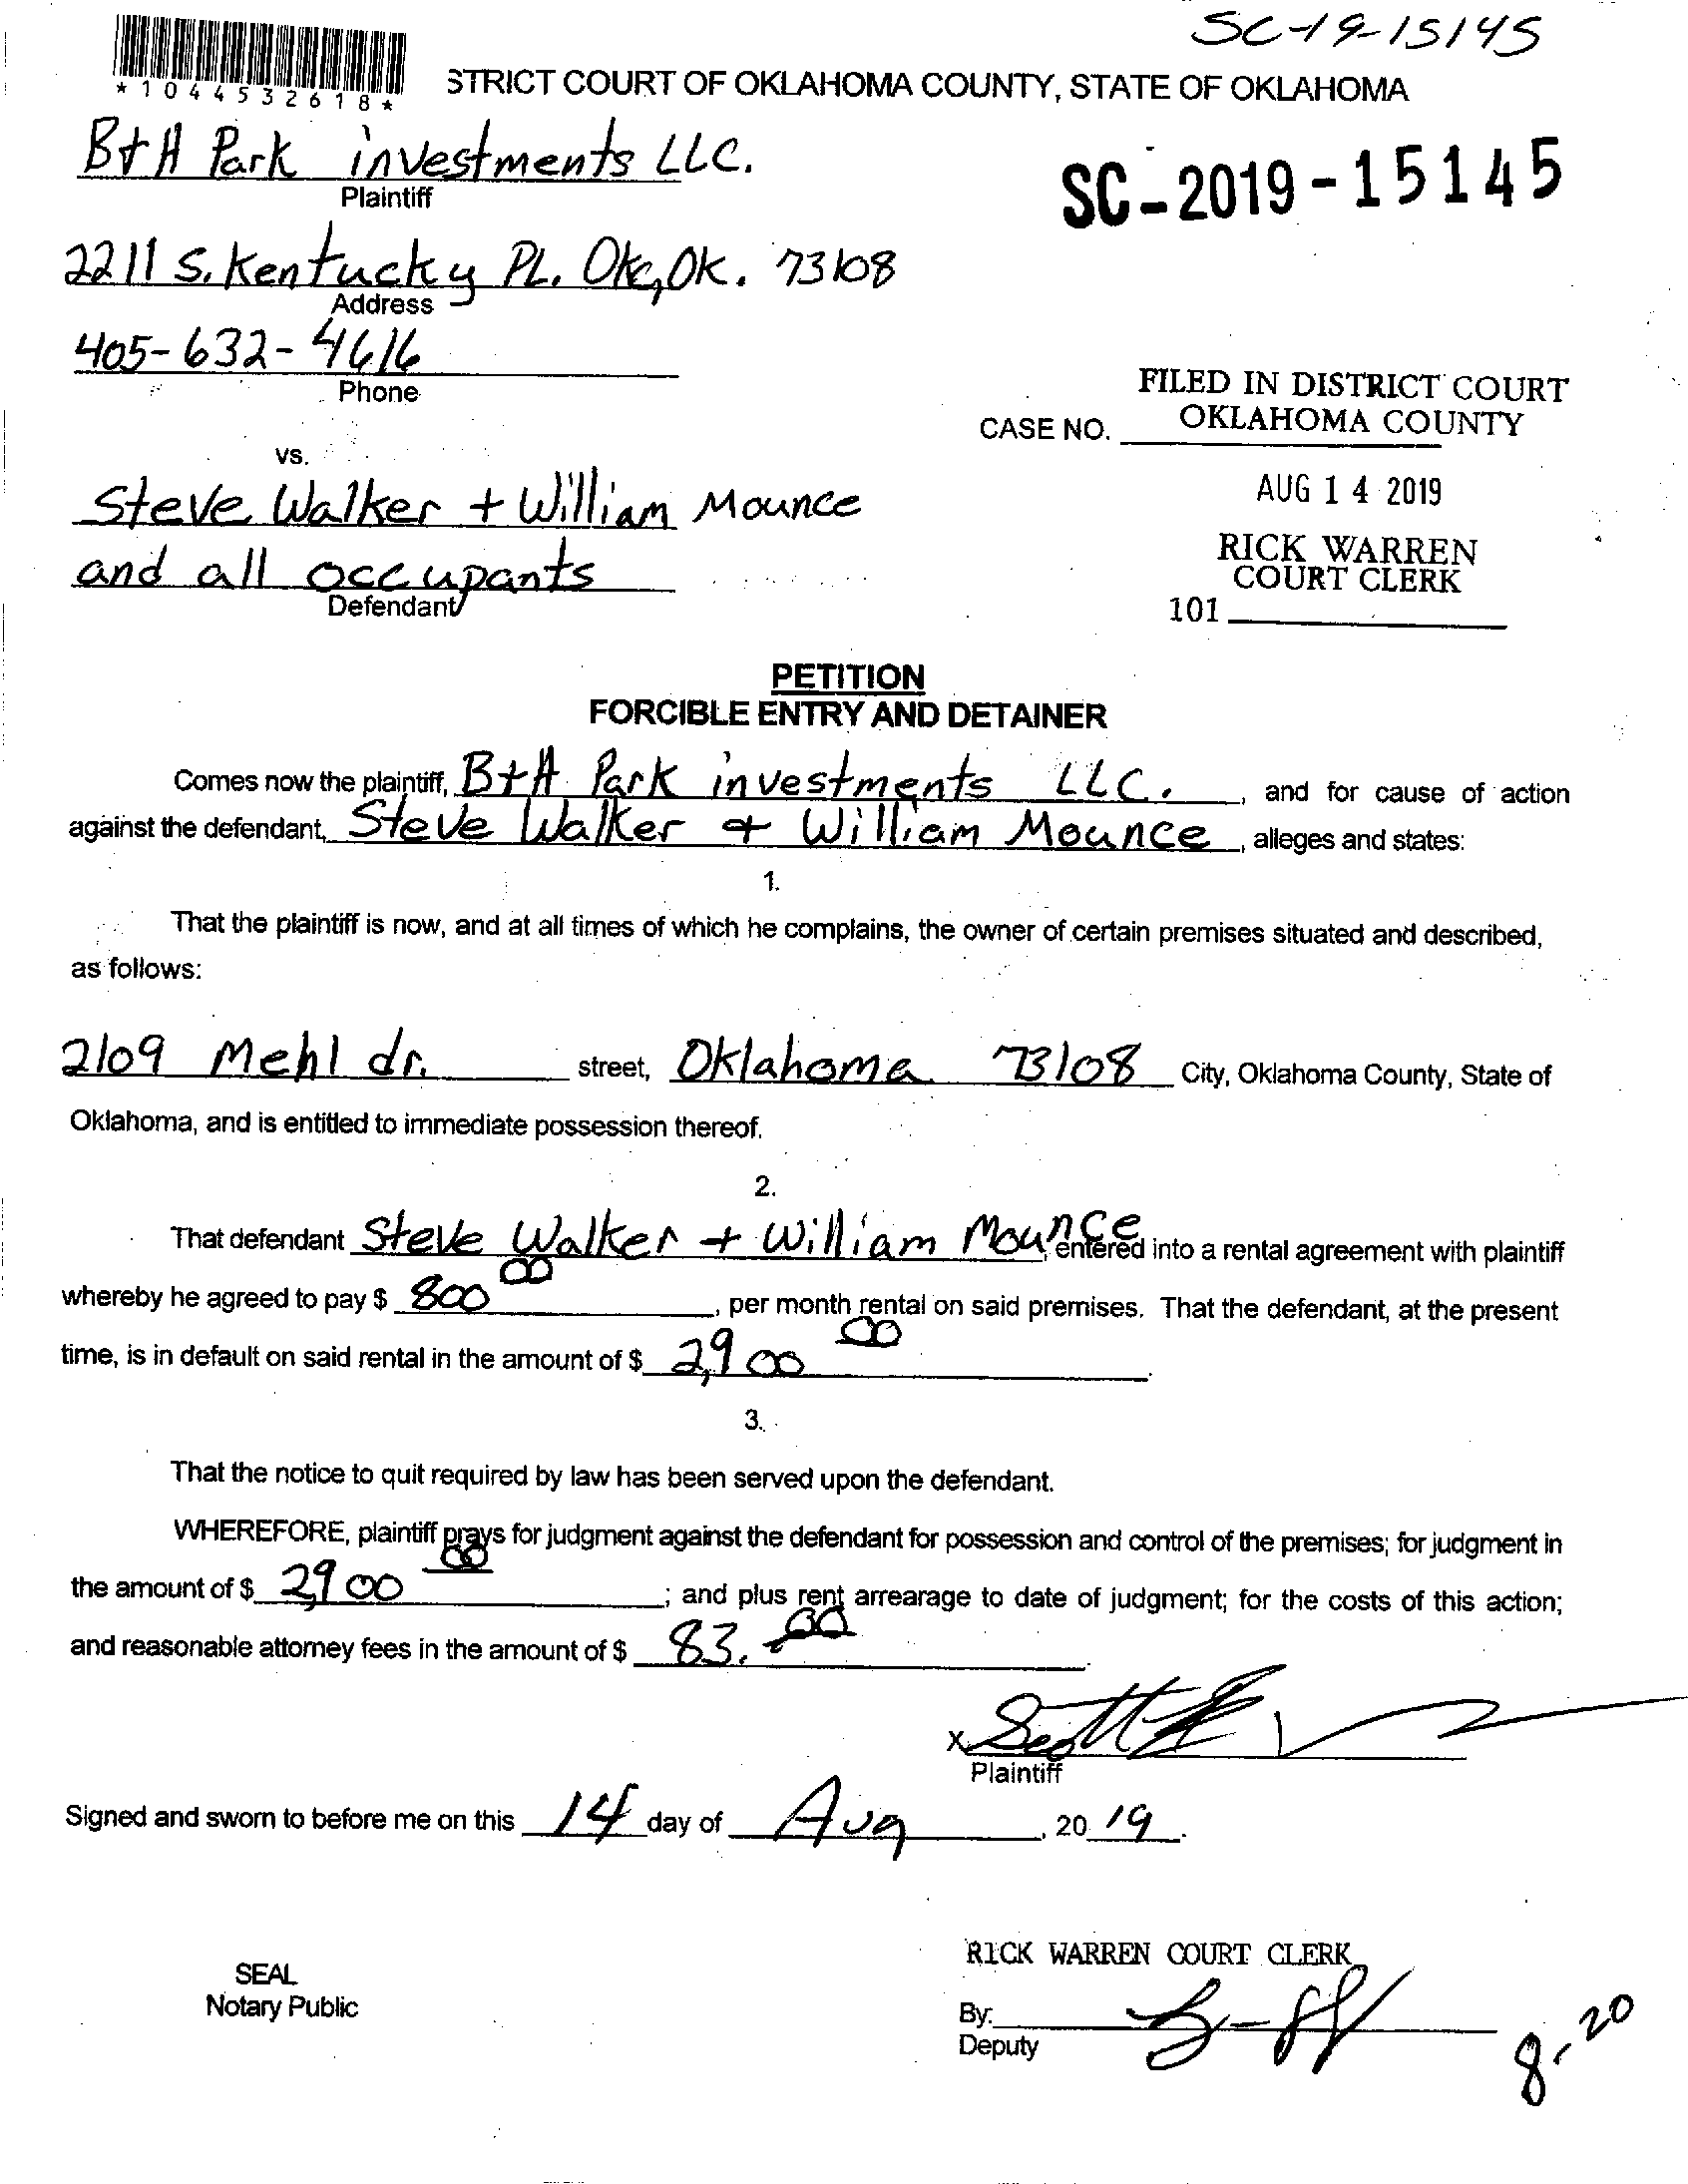 SC-19-15145
*1044532618*
STRICT COURT OF OKLAHOMA COUNTY, STATE OF OKLAHOMA
B+H Park investments LLC.
Plaintiff
SC-2019-15145
2211 S. Kentucky PL. Okc, OK. 73108
Address
405-632-4616
Phone
FILED IN DISTRICT COURT
OKLAHOMA COUNTY
CASE NO.
vs.
AUG 14 2019
Steve Walker + William Mounce
and all occupants
Defendant
RICK WARREN
COURT CLERK
101
PETITION
FORCIBLE ENTRY AND DETAINER
Comes now the plaintiff, B+H Park investments LLC., and for cause of action
against the defendant, Steve Walker + William Mounce, alleges and states:
1.
That the plaintiff is now, and at all times of which he complains, the owner of certain premises situated and described,
as follows:
2109 Mehl dr. street, Oklahoma 73108 City, Oklahoma County, State of
Oklahoma, and is entitled to immediate possession thereof.
2.
That defendant Steve Walker + William Mounce, entered into a rental agreement with plaintiff
whereby he agreed to pay $ 800 00, per month rental on said premises. That the defendant, at the present
time, is in default on said rental in the amount of $ 2,900 00.
3.
That the notice to quit required by law has been served upon the defendant.
WHEREFORE, plaintiff prays for judgment against the defendant for possession and control of the premises; for judgment in
the amount of $ 2,900 00; and plus rent arrearage to date of judgment; for the costs of this action;
and reasonable attorney fees in the amount of $ 83. 00.
X Scott
Plaintiff
Signed and sworn to before me on this 14 day of Aug, 20 19.
RICK WARREN COURT CLERK
SEAL
Notary Public
By:
Deputy
8-20